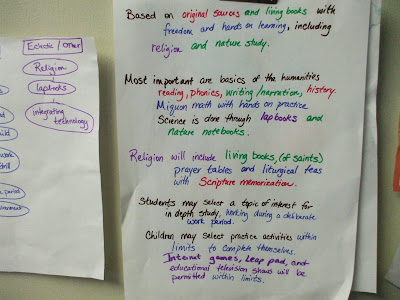 Eclectic / Other
Religion
lapbooks
integrating
technology
Based on original sources and living books with
freedom and hands on learning, including
religion and nature study.
Most important are basics of the humanities
reading, phonics, writing/narration, history.
Miquon math with hands on practice.
Science is done through lapbooks and
nature notebooks.
Religion will include living books, (of saints)
prayer tables and liturgical teas
with Scripture memorization.
Students may select a topic of interest for
in depth study, working during a deliberate
work period.
Children may select practice activities within
limits to complete themselves.
Internet games, Leap pad, and
educational television shows will be
permitted within limits.